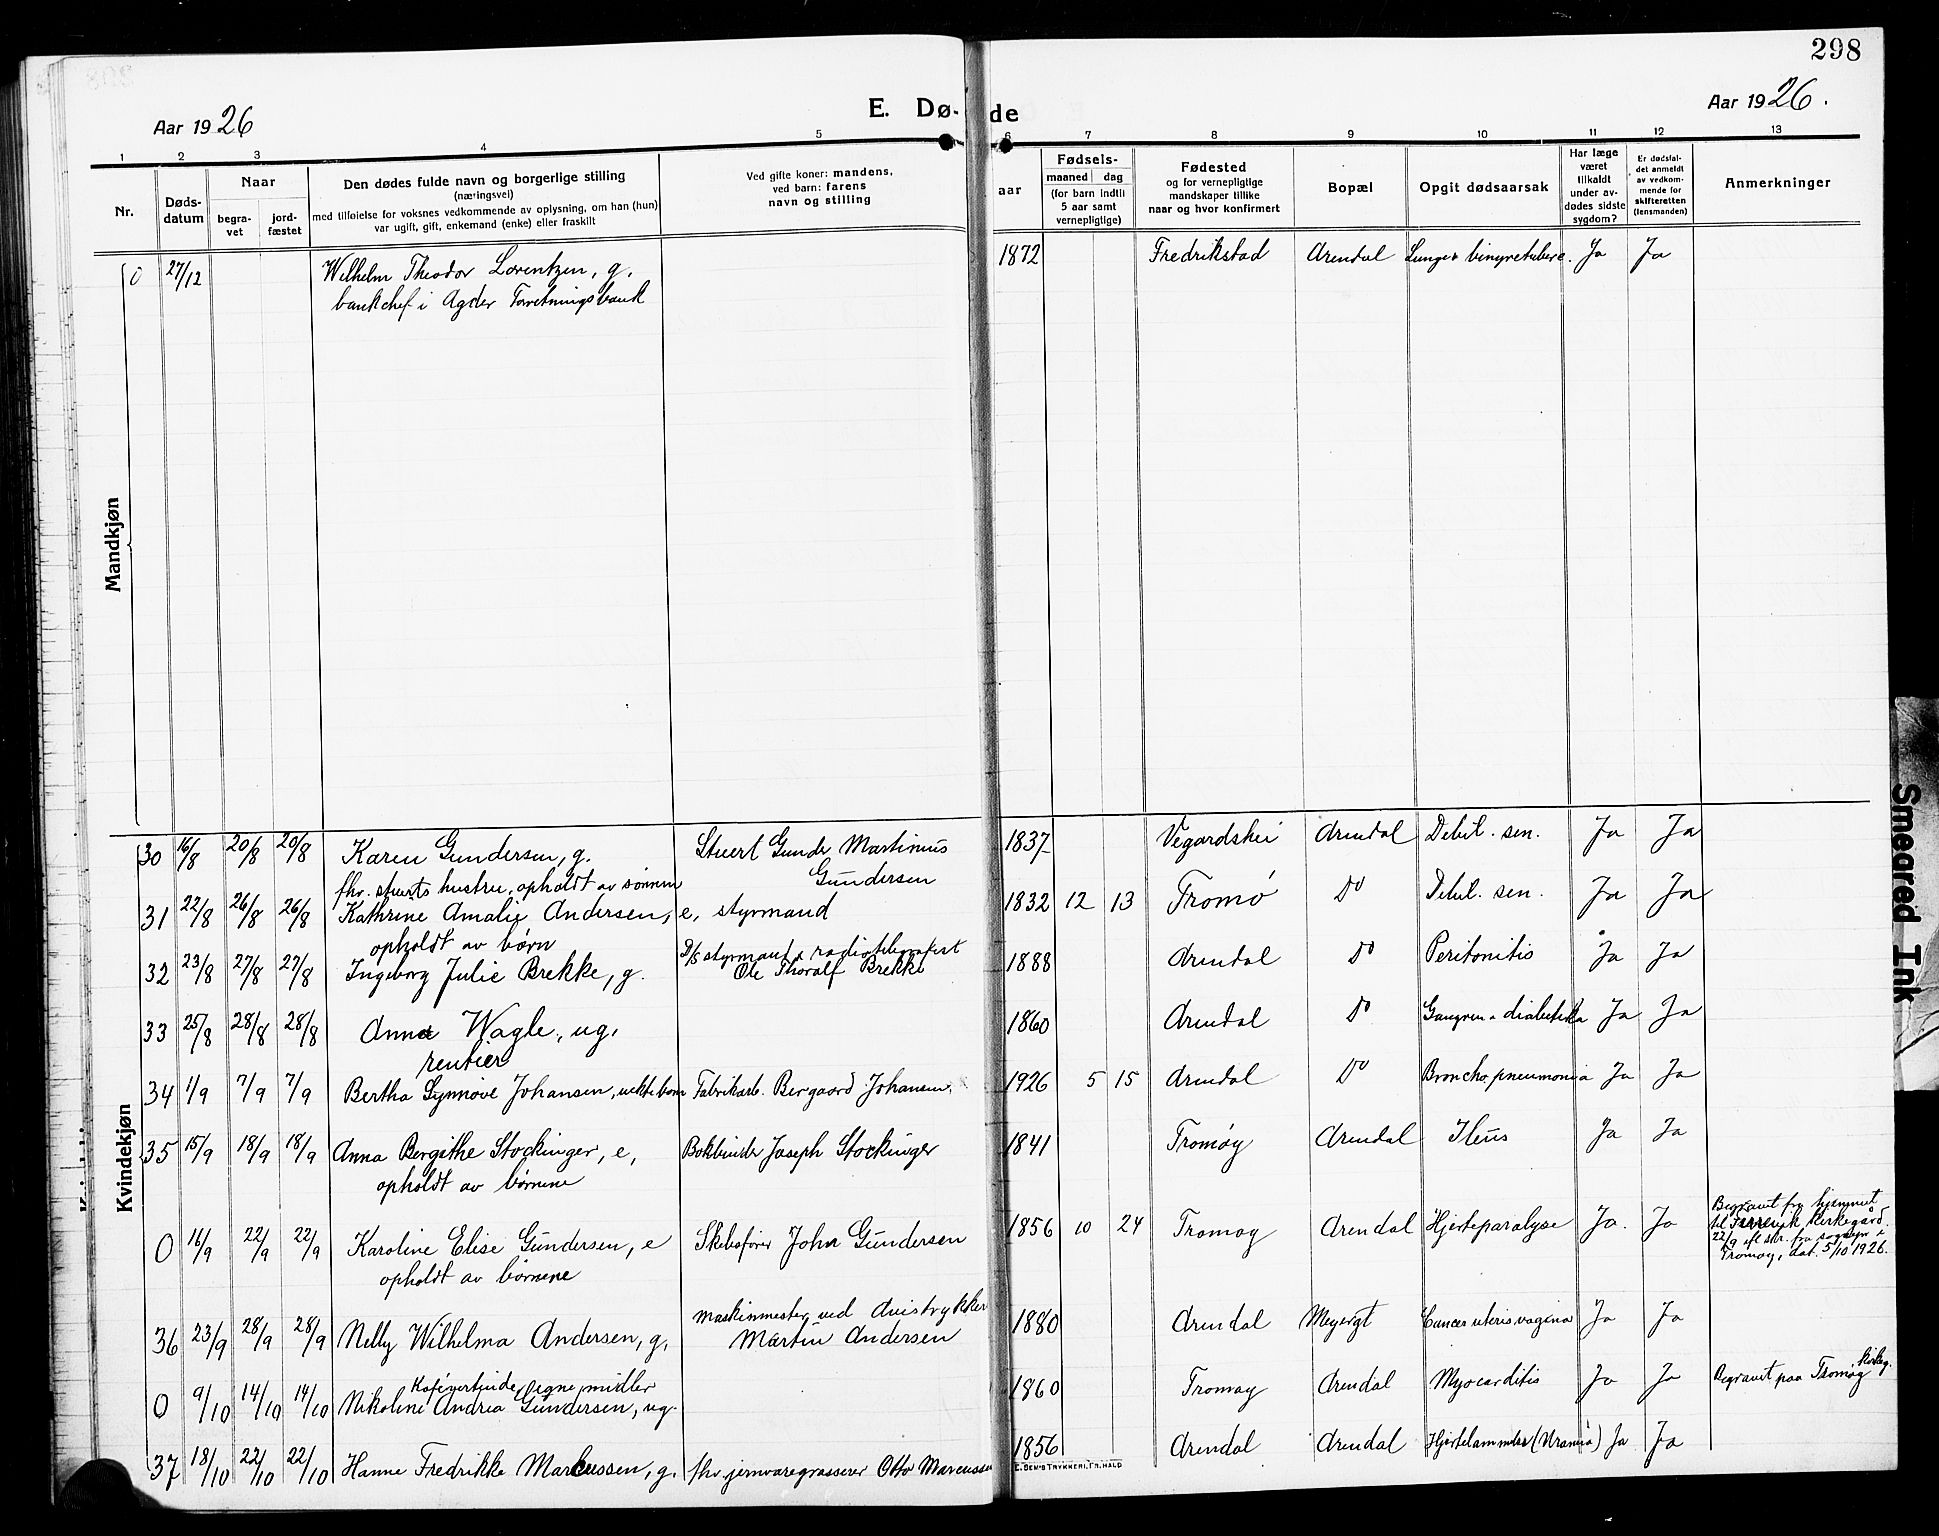 298
Aar 1926
E. Dø-
de
Aar 1926.
1 2 3 4 5 6 7 8 9 10 11 12 13
Nr.
Døds-
datum
Naar
begra-
vet
jord-
fæstet
Den dødes fulde navn og borgerlige stilling
(næringsvei)
med tilføielse for voksnes vedkommende av oplysning, om han (hun)
var ugift, gift, enkemand (enke) eller fraskilt
Ved gifte koner: mandens,
ved barn: farens
navn og stilling
aar
Fødsels-
maaned dag
(for barn indtil
5 aar samt
vernepligtige)
Fødested
og for vernepligtige
mandskaper tillike
naar og hvor konfirmert
Bopæl
Opgit dødsaarsak
Har læge
været
tilkaldt
under av-
dødes sidste
sygdom?
Er dødsfal-
det anmeldt
av vedkom-
mende for
skifteretten
(lensmanden)
Anmerkninger
Mandkjøn
0 27/12 Wilhelm Theodor Lorentzen, g. 1872 Fredrikstad Arendal Lunge & binyretuberc. Ja Ja
bankchef i Agder Forretningsbank
Kvindekjøn
30 16/8 20/8 20/8 Karen Gundersen, g. Stuert Gunder Martinius 1837 Vegardshei Arendal Debil. sen. Ja Ja
fhv. stuerts hustru, opholdt av sønnen Gundersen
31 22/8 26/8 26/8 Kathrine Amalie Andersen, e, styrmand 1832 12 13 Tromø Do Debil. sen. Ja Ja
opholdt av børn
32 23/8 27/8 27/8 Ingeborg Julie Brekke, g. D/S styrmand & radiotelegrafist 1888 Arendal Do Peritonitis Ja Ja
Ole Thoralf Brekke
33 25/8 28/8 28/8 Anna Wagle, ug. 1860 Arendal Do Gangren diabetika Ja Ja
rentier
34 1/9 7/9 7/9 Bertha Synnøve Johansen, uektebarn Fabrikarb. Bergaard Johansen. 1926 5 15 Arendal Do Bronchopneumonia Ja Ja
35 15/9 18/9 18/9 Anna Bergithe Stockinger, e, Bokbinder Joseph Stockinger 1841 Tromøy Arendal Ileus Ja Ja
opholdt av børnene
0 16/9 22/9 22/9 Karoline Elise Gundersen, e Skibsfører John Gundersen 1856 10 24 Tromøy Arendal Hjerteparalyse Ja. Ja
opholdt av børnene
Begravet fra hjemmet
til Færvik kirkegård.
22/9 efl skr. fra sognepr i
Tromøy, dat. 5/10 1926.
36 23/9 28/9 28/9 Nelly Wilhelma Andersen, g. maskinmester ved Avistrykker 1880 Arendal Meyergt Cancer uteris vagina Ja Ja
Martin Andersen
Kaféværtinde, egne midler
0 9/10 14/10 14/10 Nikoline Andrea Gundersen, ug. 1860 Tromøy Arendal Myocarditis Ja Ja Begravet paa Tromøy kirkeg.
37 18/10 22/10 22/10 Hanne Fredrikke Marcussen, g. fhv jernvaregrosserer Otto Marcussen 1856 Arendal Arendal Hjertelammelse (Uræmia) Ja Ja
E. SEM'S TRYKKERI, FR.HALD
Smeared Ink